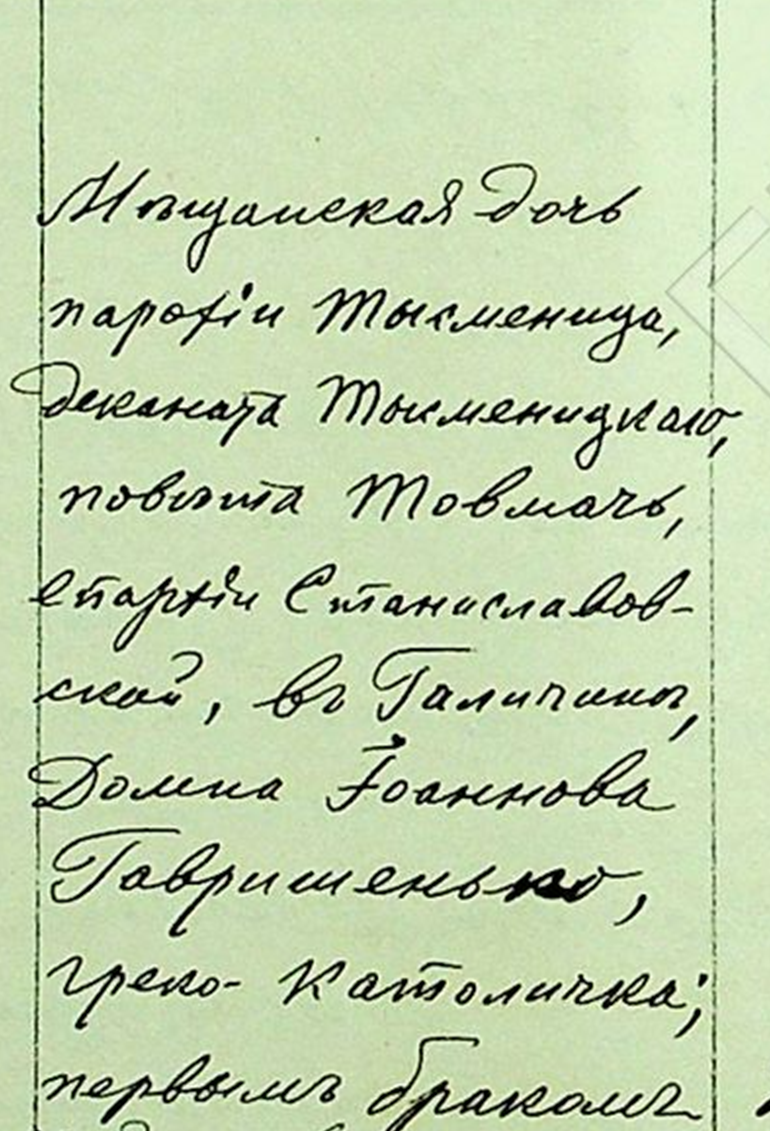 Мѣщанская дочь
парохіи Тысменица,
деканата Тысменицкаго,
повѣта Товмачъ,
епархіи Станиславов-
ской, въ Галичинѣ,
Домна Іоаннова
Гавришенько,
греко-католичка;
первымъ бракомъ